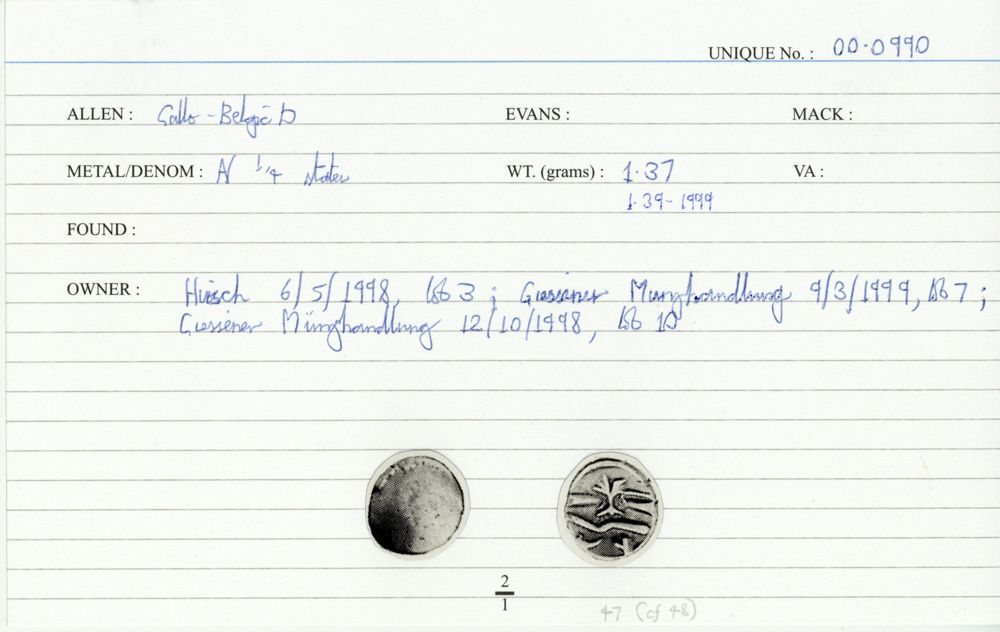 UNIQUE No. : 00-0990
ALLEN : Gallo-Belgic D EVANS : MACK :
METAL/DENOM : AV 1/4 stater WT. (grams) : 1.37 VA :
1.39 - 1999
FOUND :
OWNER : Hirsch 6/5/1998, lot 3 ; Giessener Münzhandlung 9/3/1999, lot 7 ;
Giessener Münzhandlung 12/10/1998, lot 10
2
1
47 (cf 48)